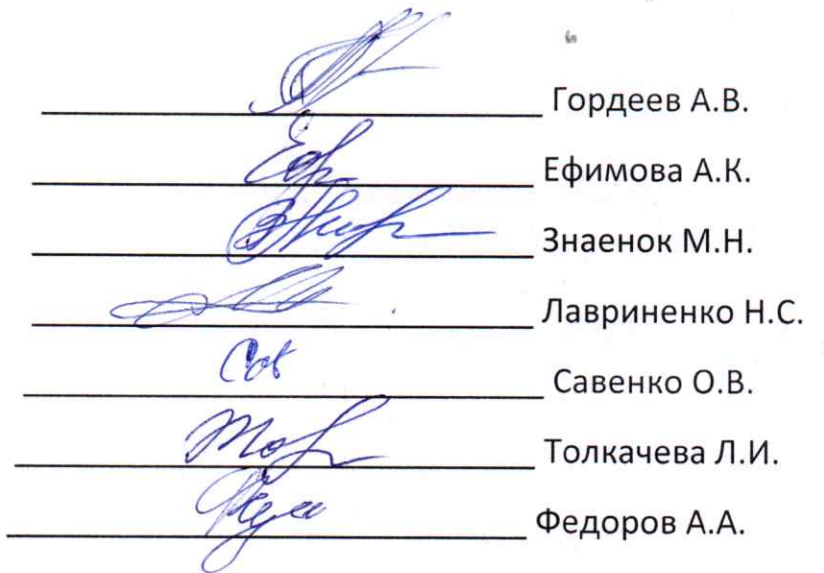 Гордеев А.В.
Ефимова А.К.
Знаенок М.Н.
Лавриненко Н.С.
Савенко О.В.
Толкачева Л.И.
Федоров А.А.